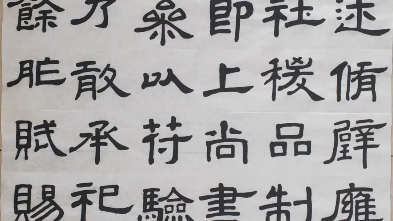 述脩璧廱
社稷品制
即上尚書
參以符驗
乃敢承祀
餘胙賦賜